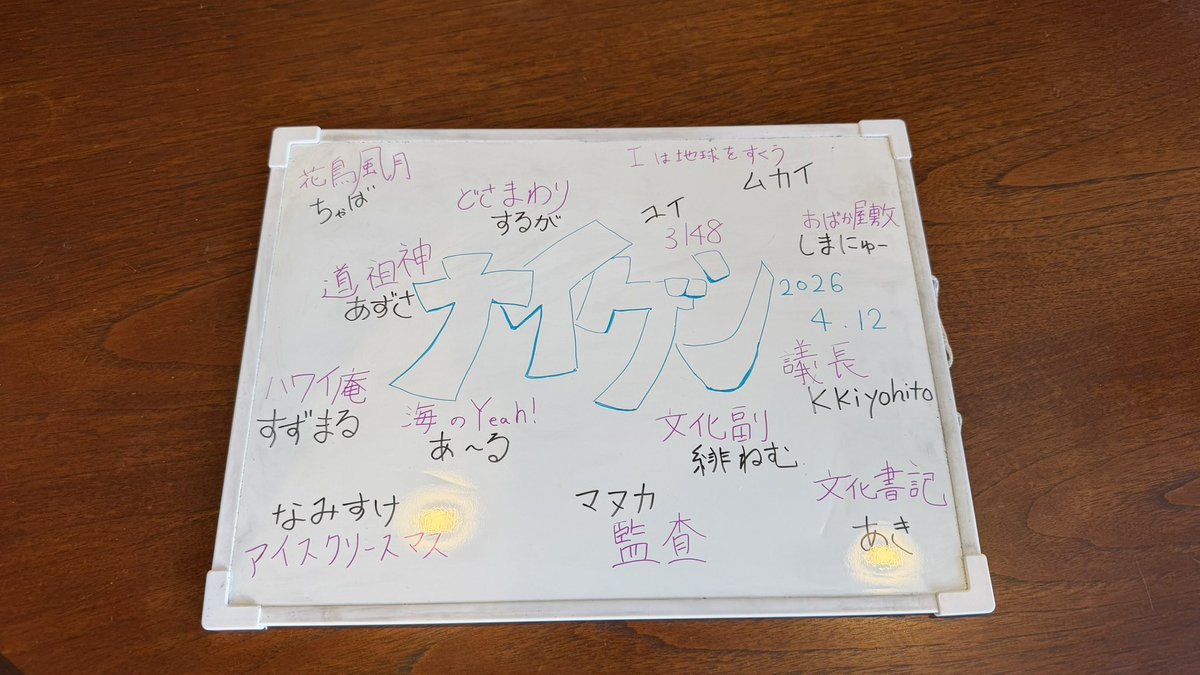 花鳥風月
ちゃば
どさまわり
するが
Iは地球をすくう
ムカイ
ユイ
3148
おばか屋敷
しまにゅー
道祖神
あずさ
ナイゲン
2026
4.12
議長
KKiyohito
ハワイ庵
すずまる
海のYeah!
あ〜る
文化副
緋ねむ
文化書記
あき
なみすけ
アイスクリースマス
マヌカ
監査